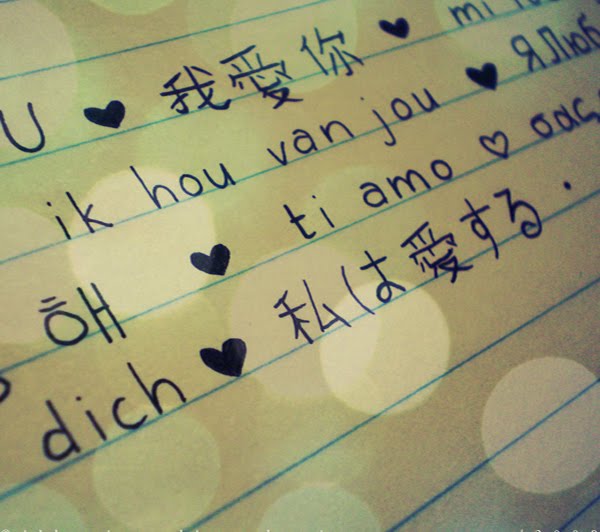 U ♥ 我愛你 ♥ mi
ik hou van jou ♥ Я Люб
해 ♥ ti amo ♡ σας
dich ♥ 私は愛する.